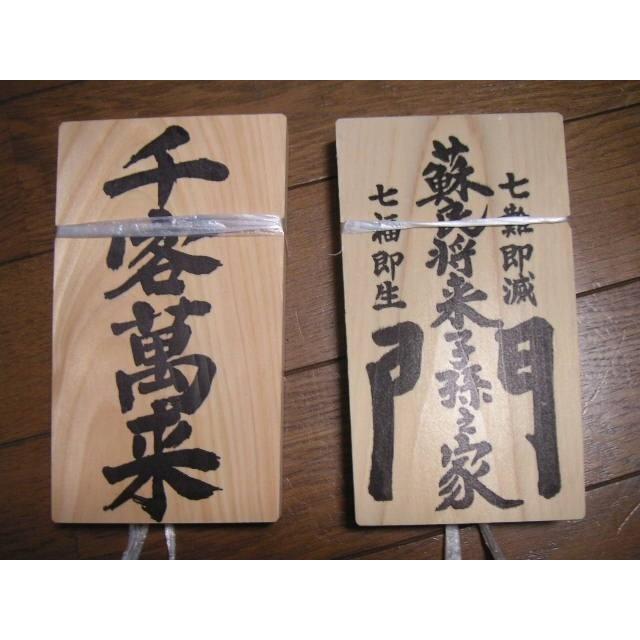 千客萬来
七難即滅
蘇民将来子孫之家
門
七福即生